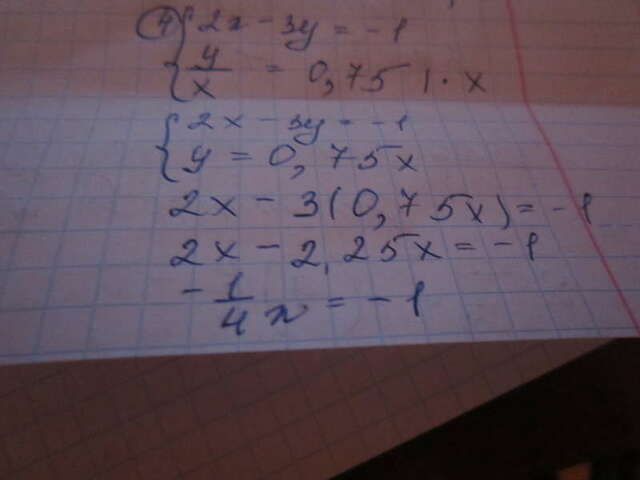 ④ { 2x - 3y = -1
{ y/x = 0,75 | · x
{ 2x - 3y = -1
{ y = 0,75x
2x - 3(0,75x) = -1
2x - 2,25x = -1
- 1/4 x = -1